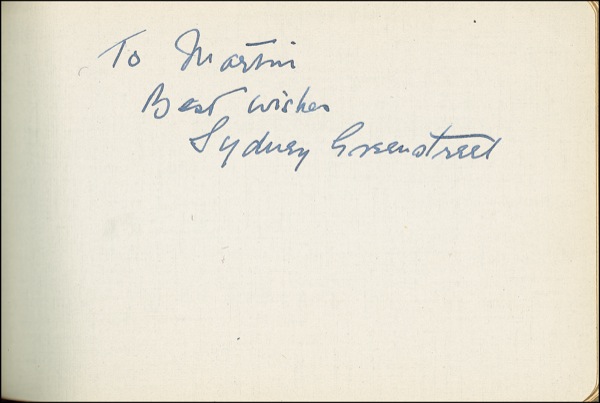 To Martin
Best wishes
Sydney Greenstreet